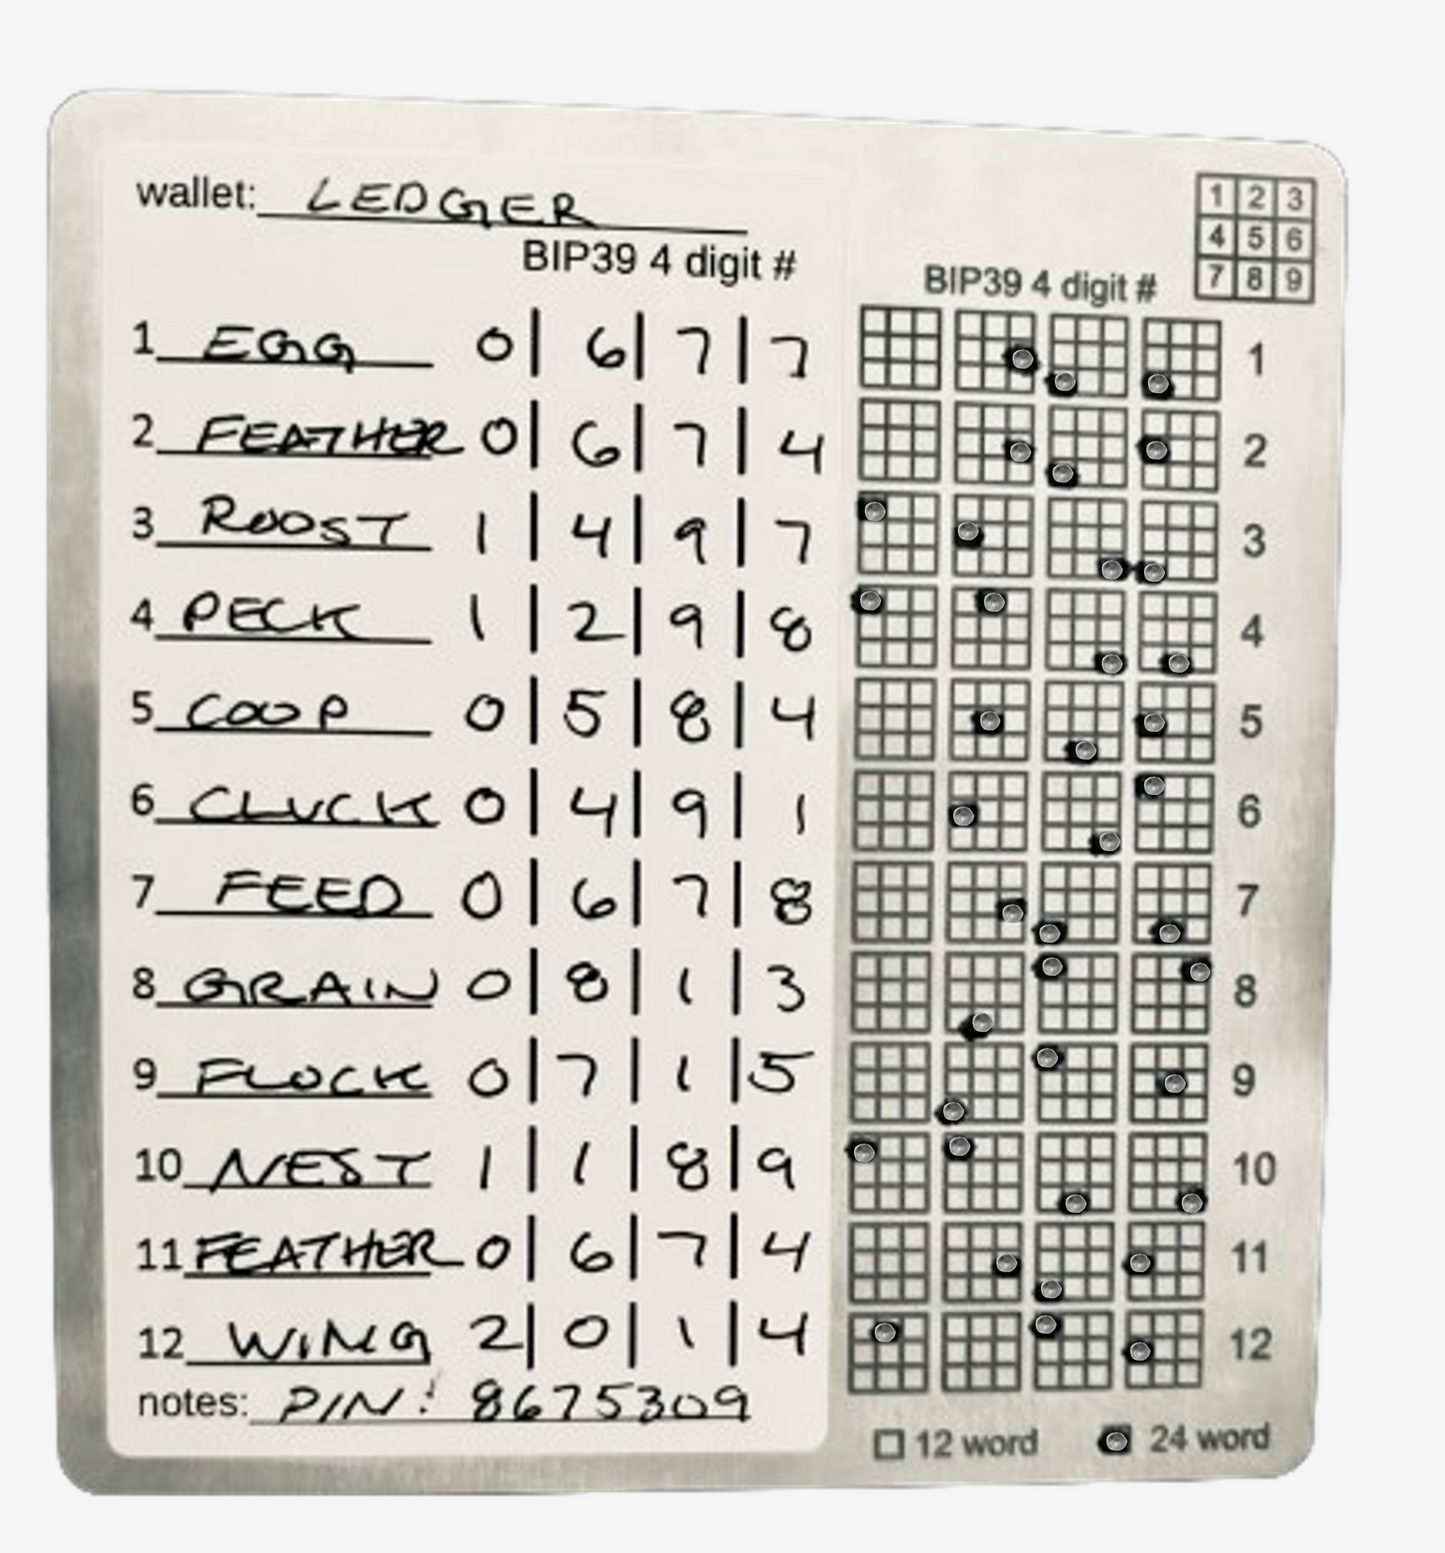 wallet: LEDGER
BIP39 4 digit #
1 EGG 0 | 6 | 7 | 7
2 FEATHER 0 | 6 | 7 | 4
3 ROOST 1 | 4 | 9 | 7
4 PECK 1 | 2 | 9 | 8
5 COOP 0 | 5 | 8 | 4
6 CLUCK 0 | 4 | 9 | 1
7 FEED 0 | 6 | 7 | 8
8 GRAIN 0 | 8 | 1 | 3
9 FLOCK 0 | 7 | 1 | 5
10 NEST 1 | 1 | 8 | 9
11 FEATHER 0 | 6 | 7 | 4
12 WING 2 | 0 | 1 | 4
notes: PIN: 8675309
1 2 3
4 5 6
7 8 9
BIP39 4 digit #
1
2
3
4
5
6
7
8
9
10
11
12
12 word 24 word